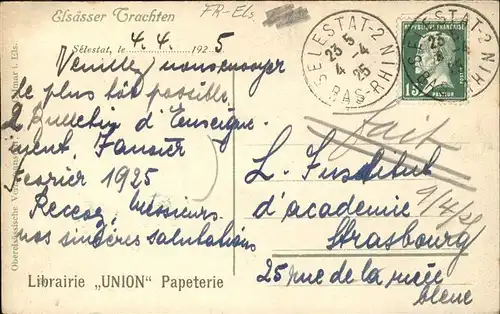 Elsässer Trachten
FR-Els.
Sélestat, le 4. 4. 1925
SELESTAT-2 N
23 5
4 4
25
BAS-RHIN
REPUBLIQUE FRANÇAISE
15c
PASTEUR
POSTES
Veuillez nous envoyer
le plus tôt possible
2 Bulletin d'Enseigne
ment, Janvier
Fevrier 1925
Recevez, Messieurs
nos sincères salutations
fait
9/4/25
L. Institut
d'academie
Strasbourg
25 rue de la nuée
bleue
Librairie „UNION" Papeterie
Oberelsässische